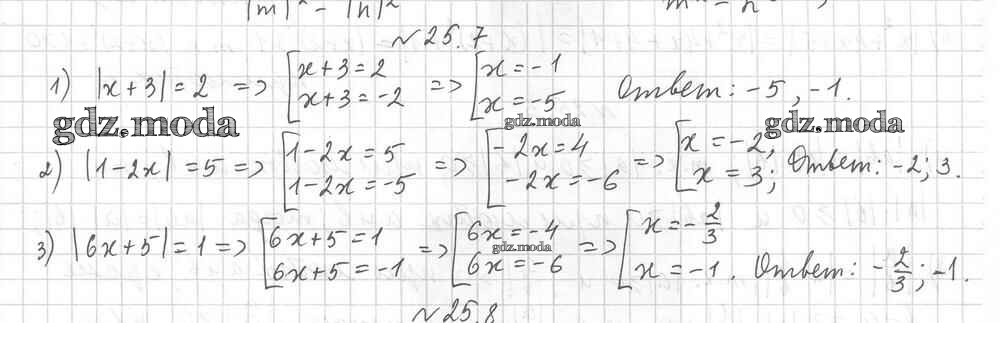 |m|² - |n|²
№25.7
1) |x+3|=2 => [x+3=2 x+3=-2 => [x=-1 x=-5 Ответ: -5, -1.
gdz.moda gdz.moda gdz.moda
2) |1-2x|=5 => [1-2x=5 1-2x=-5 => [-2x=4 -2x=-6 => [x=-2; x=3; Ответ: -2; 3.
3) |6x+5|=1 => [6x+5=1 6x+5=-1 => [6x=-4 6x=-6 => [x=-2/3 x=-1. Ответ: -2/3; -1.
gdz.moda
№25.8